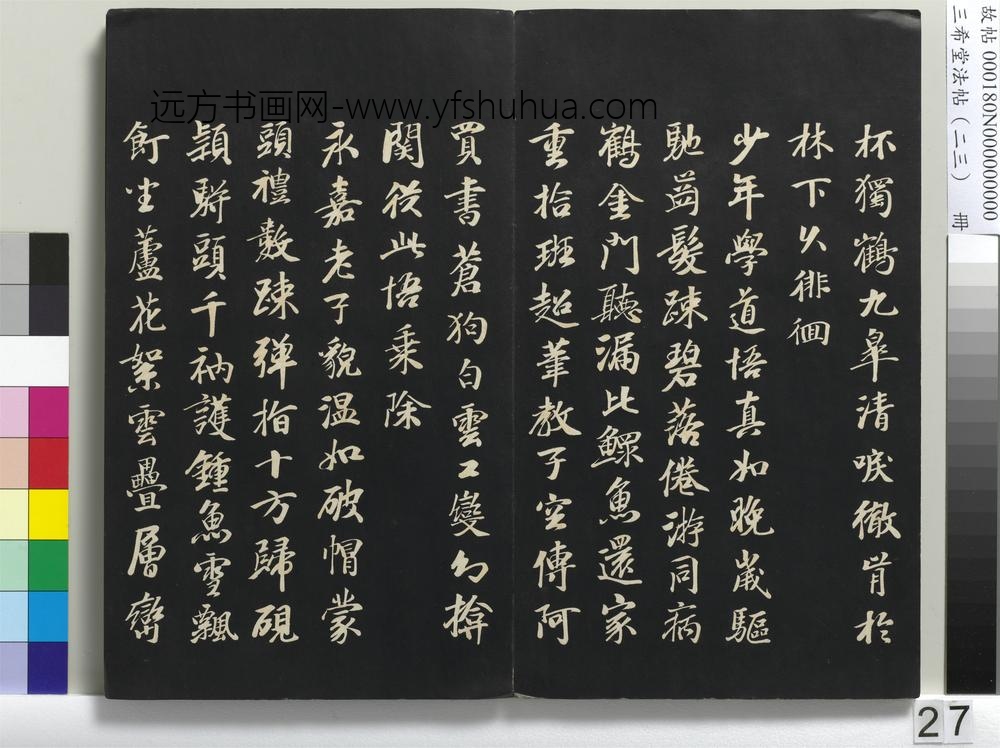 杯獨鶴九皋清唳徹肯於
林下久徘徊
少年學道悟真如晚歲驅
馳齒髮疎碧落倦游同病
鶴金門聽漏比鰥魚還家
重拾班超筆教子空傳阿
買書蒼狗白雲工變幻掩
關從此悟乘除
永嘉老子貌温如破帽蒙
頭禮數踈弹指十方歸硯
頴駢頭千衲護鍾魚雪飄
飣坐蘆花絮雲疊層巒
远方书画网-www.yfshuhua.com
故帖 000180N000000000
三希堂法帖（二三） 冊
27